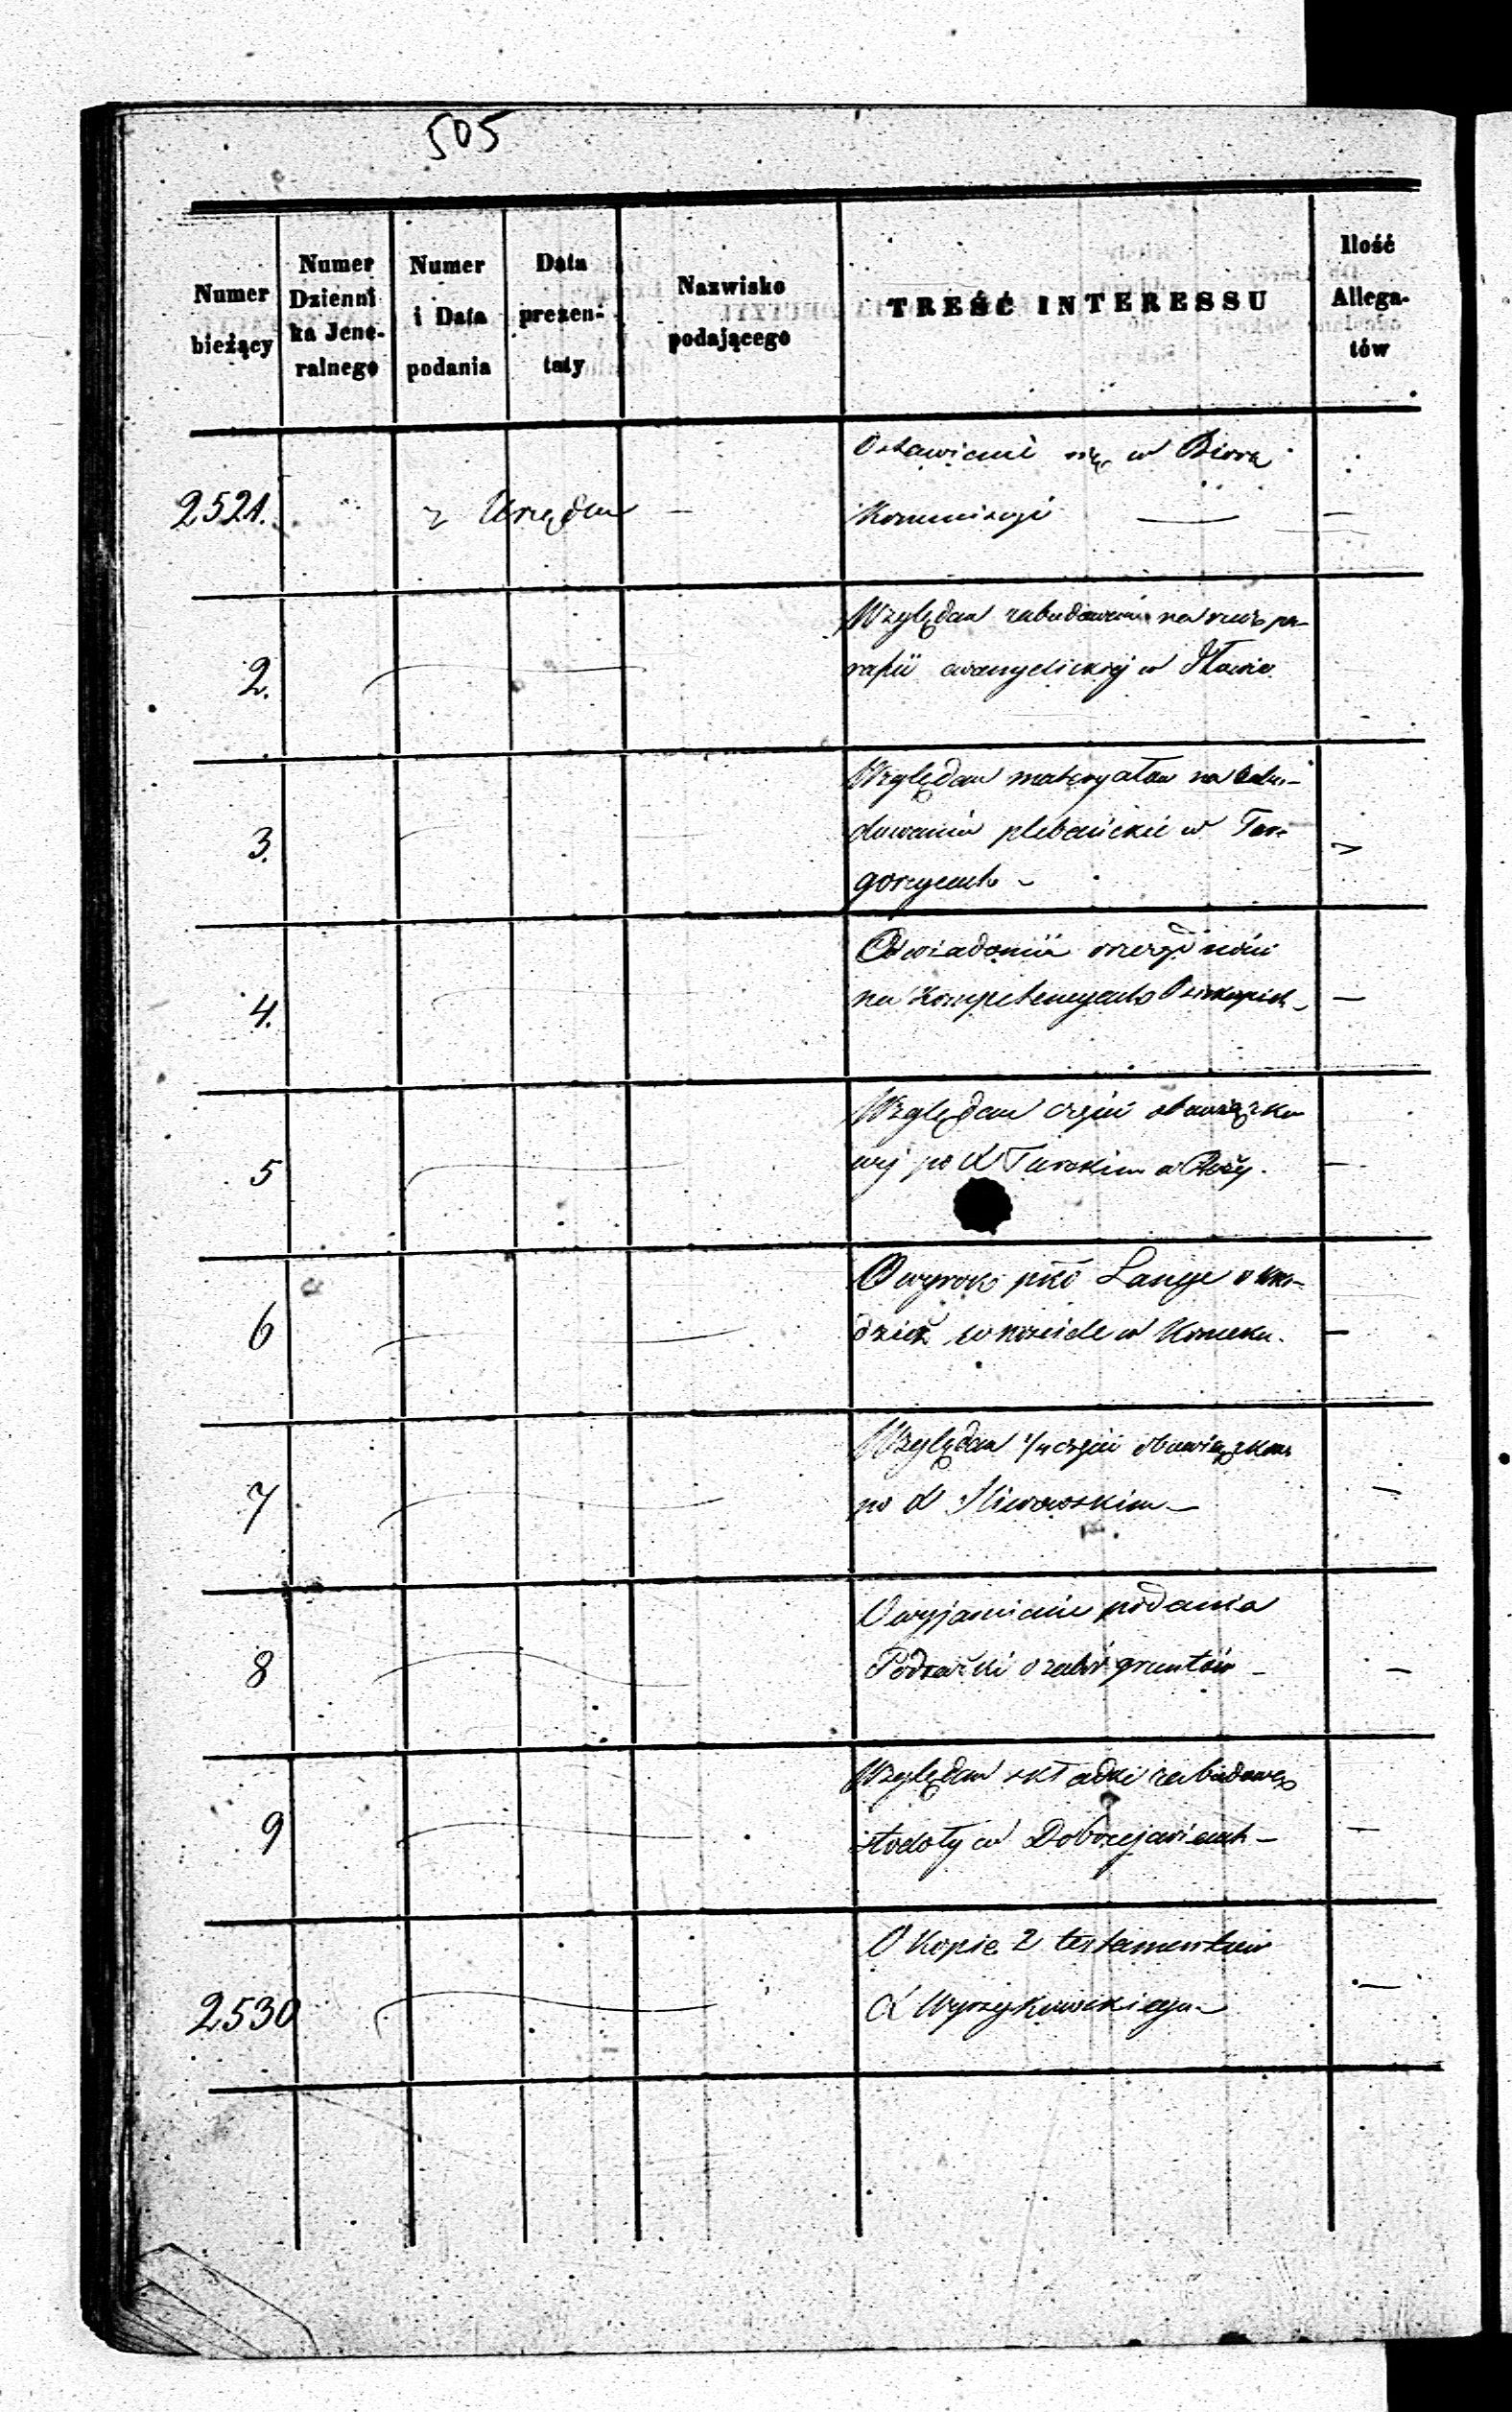 505
Numer bieżący
Numer Dziennika Jeneralnego
Numer i Data podania
Data prezentaty
Nazwisko podającego
TREŚĆ INTERESSU
Ilość Allegatów
2521. z Urzędu —
O stawienie się w Biorze
Kommissyi — —
2.
Względem zabudowań na rzecz pa-
rafii ewangelickiej w Iławie
3.
Względem materyałów na zabu-
dowania plebańskie w Tar-
gorzycach —
4.
na kompetencyach —
5
Względem części obowiązko
wej po X Turskim —
6
O wyrok pko Lange o kra-
dzież w kościele w Konecku. —
7
Względem 1/4 części obowiązkow.
po X —
8
O wyjaśnienie podania
o zabór gruntów — —
9
Względem składki
stodoły w Dobrzejewicach — —
2530
O Kopie 2 testamentów
X Wyrzykowskiego — —